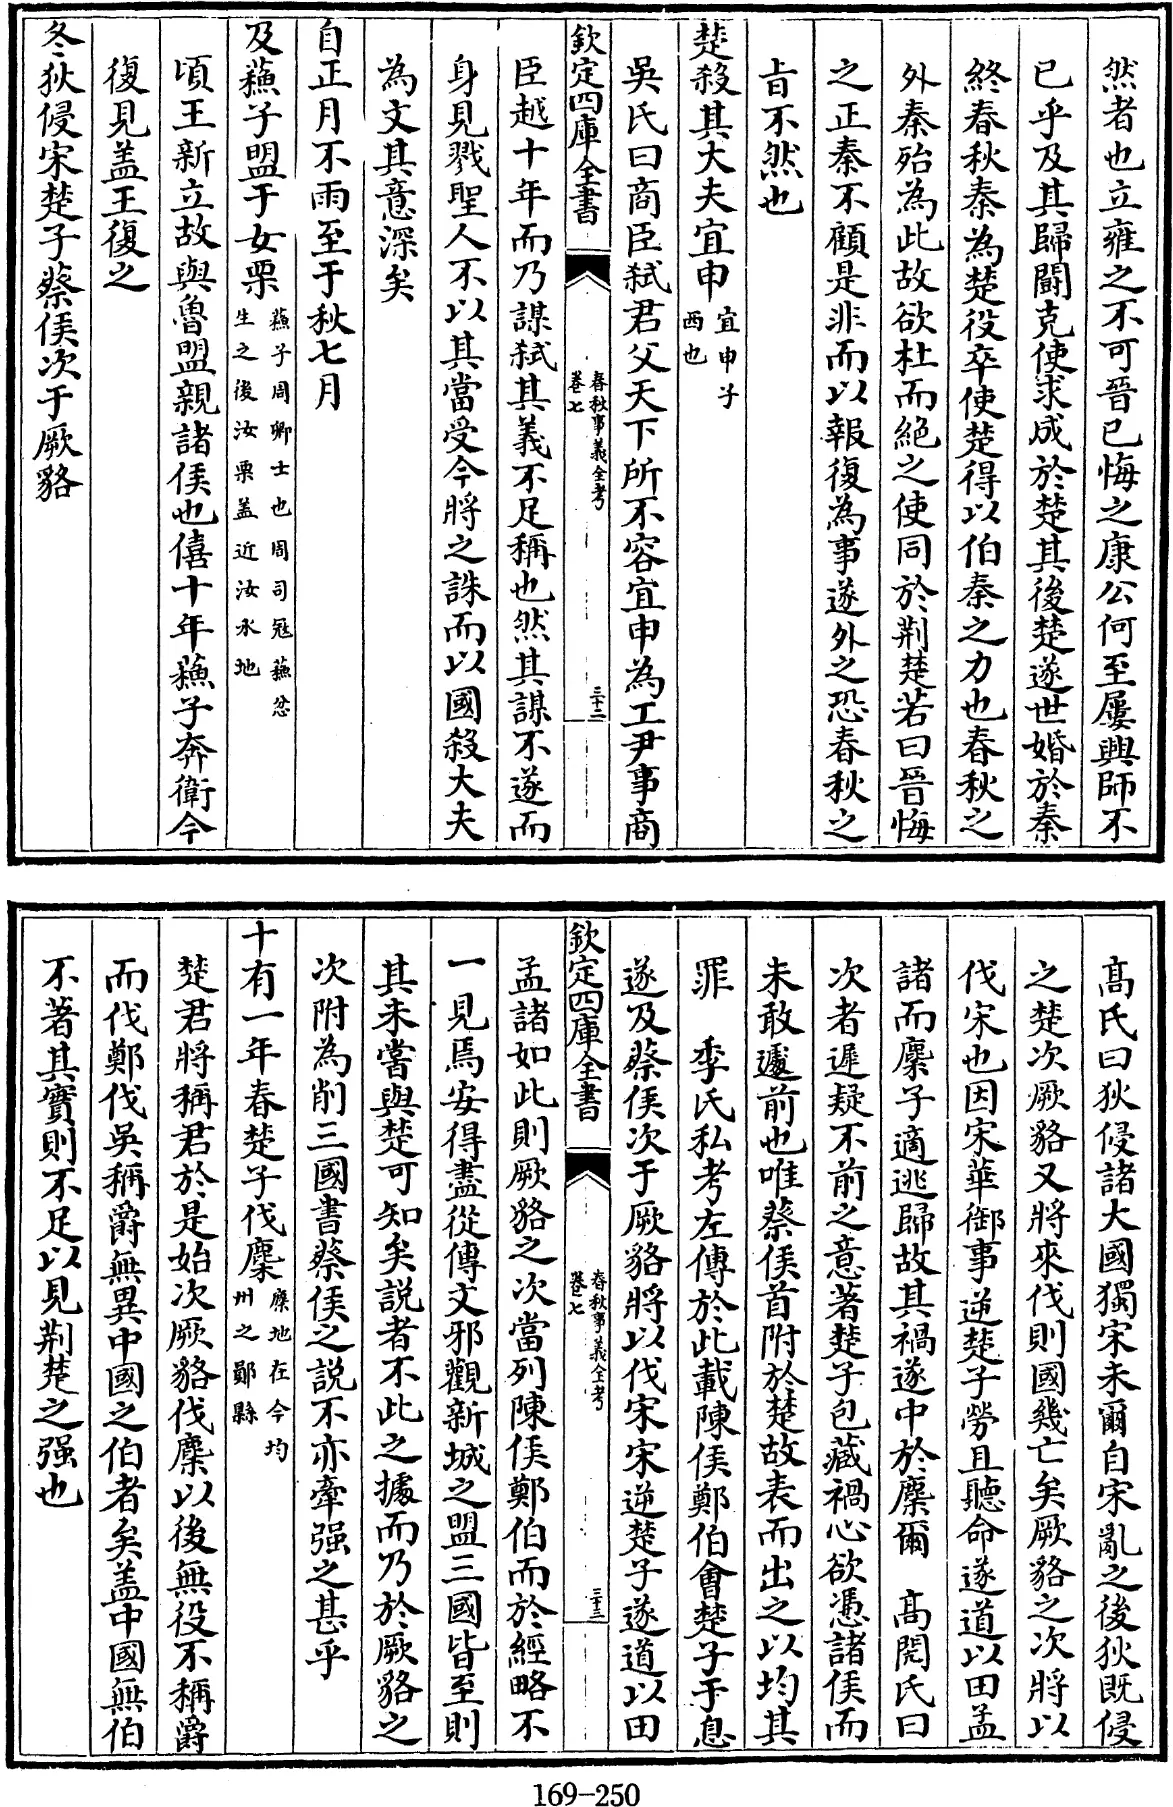 然者也立雍之不可晉已悔之康公何至屢興師不
已乎及其歸鬭克使求成於楚其後楚遂世婚於秦
終春秋秦為楚役卒使楚得以伯秦之力也春秋之
外秦殆為此故欲杜而絶之使同於荆楚若曰晉悔
之正秦不顧是非而以報復為事遂外之恐春秋之
㫖不然也
楚殺其大夫宜申宜申子西也
吳氏曰商臣弑君父天下所不容宜申為工尹事商
欽定四庫全書 春秋事義全考 卷七 三十二
臣越十年而乃謀弑其義不足稱也然其謀不遂而
身見戮聖人不以其當受今將之誅而以國殺大夫
為文其意深矣
自正月不雨至于秋七月
及蘓子盟于女栗蘓子周卿士也周司冦蘓忿生之後汝栗盖近汝水地
頃王新立故與魯盟親諸侯也僖十年蘓子奔衛今
復見盖王復之
冬狄侵宋楚子蔡侯次于厥貉
髙氏曰狄侵諸大國獨宋未爾自宋亂之後狄既侵
之楚次厥貉又將來伐則國幾亡矣厥貉之次將以
伐宋也因宋華御事逆楚子勞且聽命遂道以田孟
諸而麇子適逃歸故其禍遂中於麇爾 髙閌氏曰
次者遲疑不前之意著楚子包藏禍心欲憑諸侯而
未敢遽前也唯蔡侯首附於楚故表而出之以均其
罪 季氏私考左傳於此載陳侯鄭伯會楚子于息
遂及蔡侯次于厥貉將以伐宋宋逆楚子遂道以田
欽定四庫全書 春秋事義全考 卷七 三十三
孟諸如此則厥貉之次當列陳侯鄭伯而於經略不
一見焉安得盡從傳文邪觀新城之盟三國皆至則
其未嘗與楚可知矣説者不此之據而乃於厥貉之
次附為削三國書蔡侯之説不亦牽强之甚乎
十有一年春楚子伐麇麇地在今均州之鄖縣
楚君將稱君於是始次厥貉伐麇以後無役不稱爵
而伐鄭伐吳稱爵無異中國之伯者矣盖中國無伯
不著其實則不足以見荆楚之强也
169-250